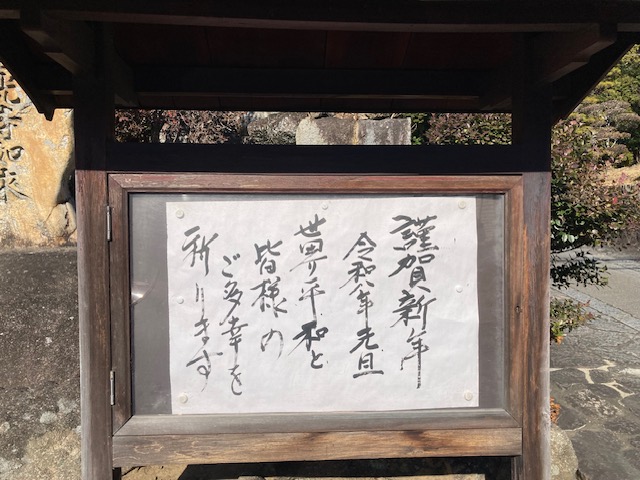 謹賀新年
令和八年元旦
世界平和と
皆様の
ご多幸を
祈ります